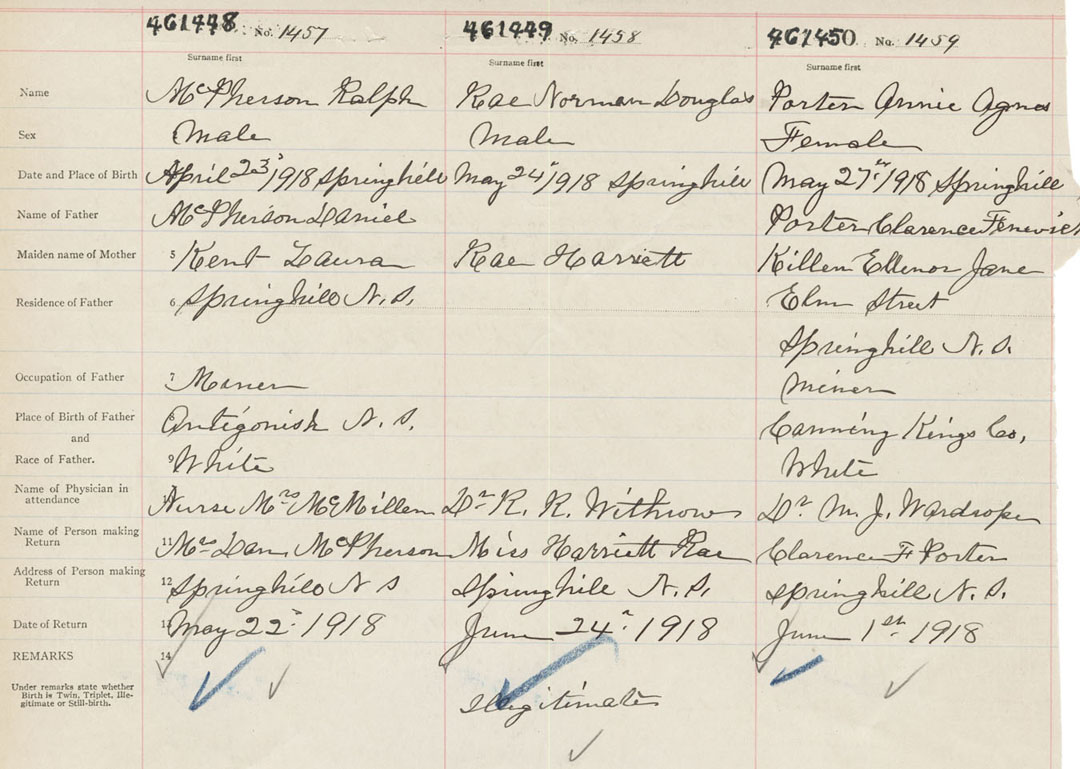 461448 No. 1457 461449 No. 1458 461450 No. 1459
Surname first Surname first Surname first
Name McPherson Ralph Rae Norman Douglas Porter Annie Agnes
Sex Male Male Female
Date and Place of Birth April 23 1918 Springhill May 24 1918 Springhill May 27 1918 Springhill
Name of Father McPherson Daniel Porter Clarence
Maiden name of Mother 5 Kent Laura Rae Harriett Killem Ellenor Jane
Residence of Father 6 Springhill N.S. Elm Street
Springhill N.S.
Occupation of Father 7 Miner Miner
Place of Birth of Father 8 Antigonish N.S. Canning Kings Co,
and
Race of Father. 9 White White
Name of Physician in
attendance Nurse Mrs McMillen Dr R. R. Withrow Dr M. J. Wardrope
Name of Person making
Return 11 Mrs Dan McPherson Miss Harriett Rae Clarence F Porter
Address of Person making
Return 12 Springhill N S Springhill N.S. Springhill N.S.
Date of Return 13 May 22 1918 June 24 1918 June 1st 1918
REMARKS 14
Under remarks state whether
Birth is Twin, Triplet, Ille-
gitimate or Still-birth. Illegitimate